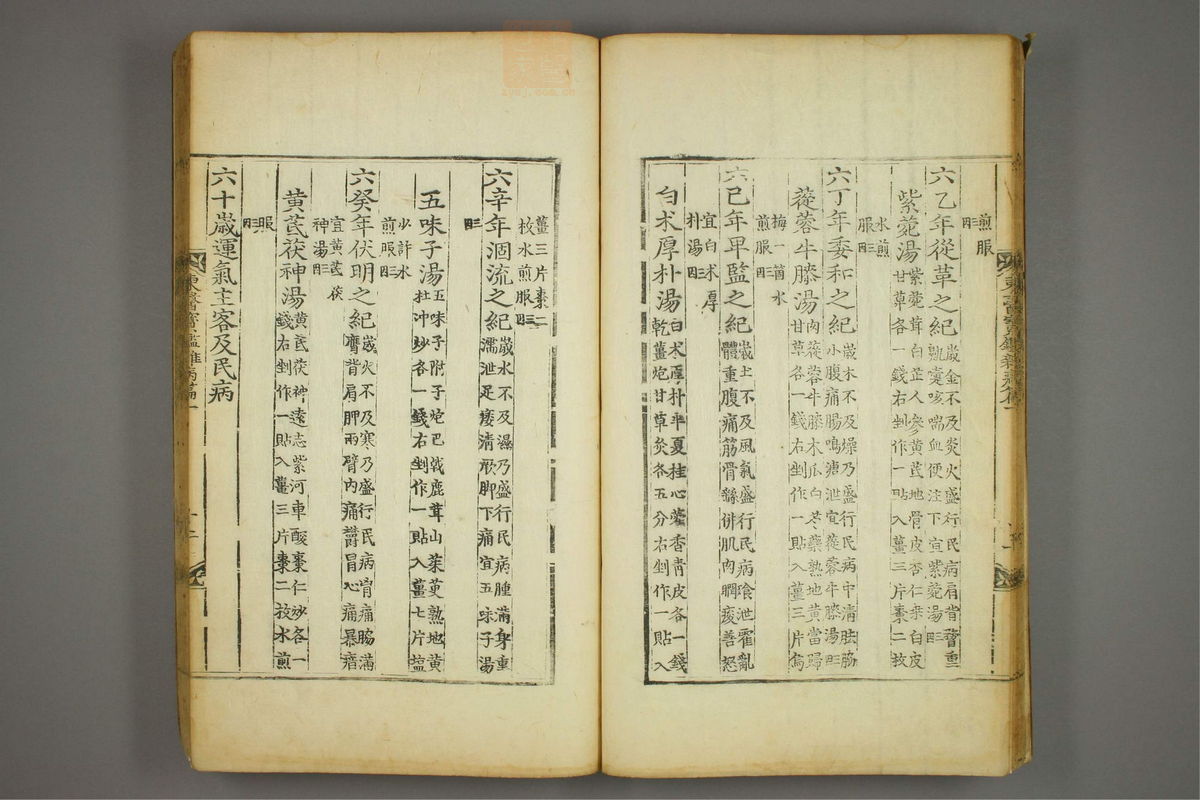 煎服
三因
六乙年從革之紀 歲金不及炎火盛行民病肩背瞀重
鼽嚏咳喘血便注下宜紫菀湯三因
紫菀湯 紫菀茸白芷人參黃芪地骨皮杏仁桑白皮
甘草各一錢右剉作一貼入薑三片棗二枚
水煎
服三因
六丁年委和之紀 歲木不及燥乃盛行民病中清胠脇
小腹痛腸鳴溏泄宜蓯蓉牛膝湯三因
蓯蓉牛膝湯 肉蓯蓉牛膝木瓜白芍藥熟地黃當歸
甘草各一錢右剉作一貼入薑三片烏
梅一箇水
煎服三因
六己年卑監之紀 歲土不及風氣盛行民病飱泄霍亂
體重腹痛筋骨繇倂肌肉瞤痠善怒
宜白朮厚
朴湯三因
白朮厚朴湯 白朮厚朴半夏桂心藿香靑皮各一錢
乾薑炮甘草灸各五分右剉作一貼入
薑三片棗二
枚水煎服三因
六辛年涸流之紀 歲水不及濕乃盛行民病腫滿身重
濡泄足痿清厥脚下痛宜五味子湯
三因
五味子湯 五味子附子炮巴戟鹿茸山茱萸熟地黃
杜冲炒各一錢右剉作一貼入薑七片鹽
少許水
煎服三因
六癸年伏明之紀 歲火不及寒乃盛行民病胷痛脇滿
膺背肩胛兩臂內痛鬱冒心痛暴瘖
宜黃芪茯
神湯三因
黃芪茯神湯 黃芪茯神遠志紫河車酸棗仁炒各一
錢右剉作一貼入薑三片棗二枚水煎
服
三因
六十歲運氣主客及民病
東醫寶鑑雜病篇一